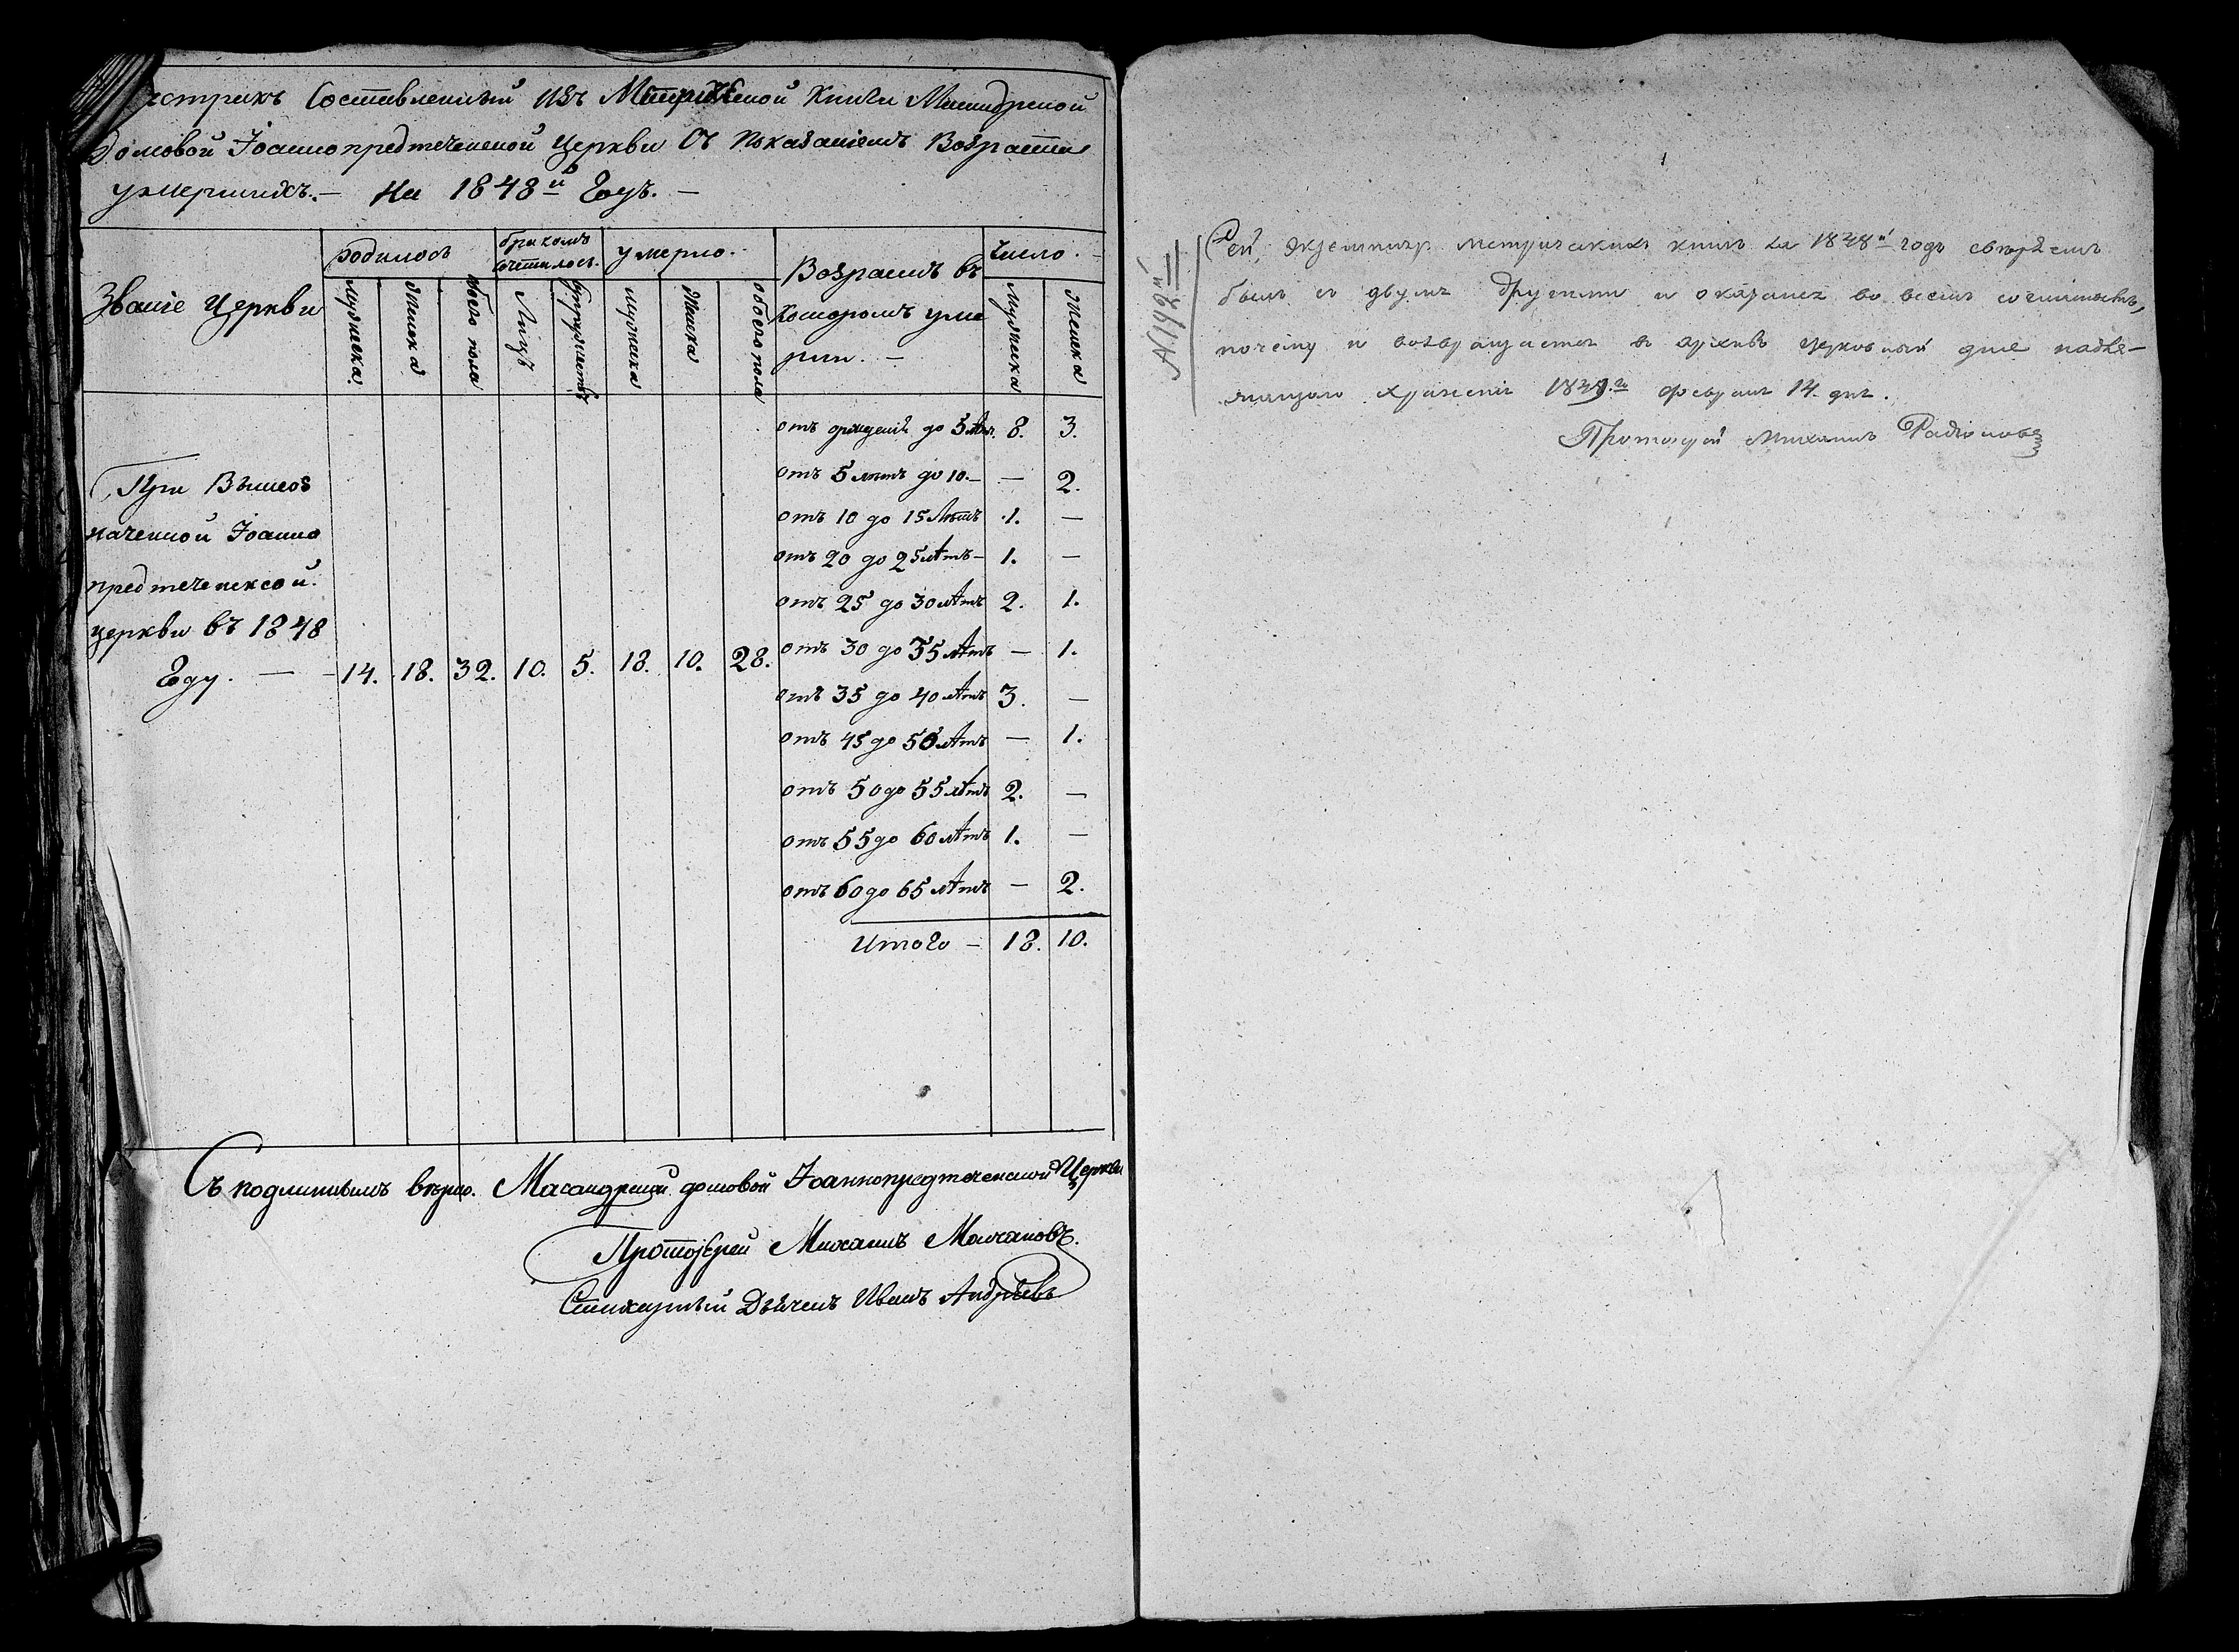 Экстрактъ Составленный изъ Метрической Книги Масандрской
Домовой Іоаннопредтеченской Церкви Съ Показаніемъ Возраста
умершихъ. — На 1848й Годъ. —
Званіе Церкви
родилось
бракомъ сочеталось.
умерло.
Возрастъ въ
которомъ уме
рли. —
Число.
мужеска.
женска
обоего пола
Лицъ
супружествъ
мужеска
женска
обоего пола
мужеска
женска
При Вышеоз
наченной Іоанно
предтеченской
церкви въ 1848
Году. — 14. 18. 32. 10. 5. 18. 10. 28.
отъ рожденія до 5 лѣт. 8. 3.
отъ 5 лѣтъ до 10. — — 2.
отъ 10 до 15 Лѣтъ 1. —
отъ 20 до 25 лѣтъ — 1. —
отъ 25 до 30 лѣтъ 2. 1.
отъ 30 до 35 лѣтъ — 1.
отъ 35 до 40 лѣтъ 3. —
отъ 45 до 50 лѣтъ — 1.
отъ 50 до 55 лѣтъ 2. —
отъ 55 до 60 лѣтъ 1. —
отъ 60 до 65 лѣтъ — 2.
Итого — 18. 10.
Съ подлиннымъ вѣрно. Масандрской домовой Іоаннопредтеченской Церкви
Протоіерей Михаилъ Молчановъ.
Стихарный Дьячекъ Иванъ Андрѣевъ
N 192й
Сей экземпляр метрических книгъ за 1848й годъ свѣряемъ
былъ съ двумя другими и оказался во всемъ согласнымъ,
почему и возвращается въ архивъ церковный для надле-
жащаго храненія 1849.го февраля 14. дня.
Протоіерей Михаилъ Родіоновъ